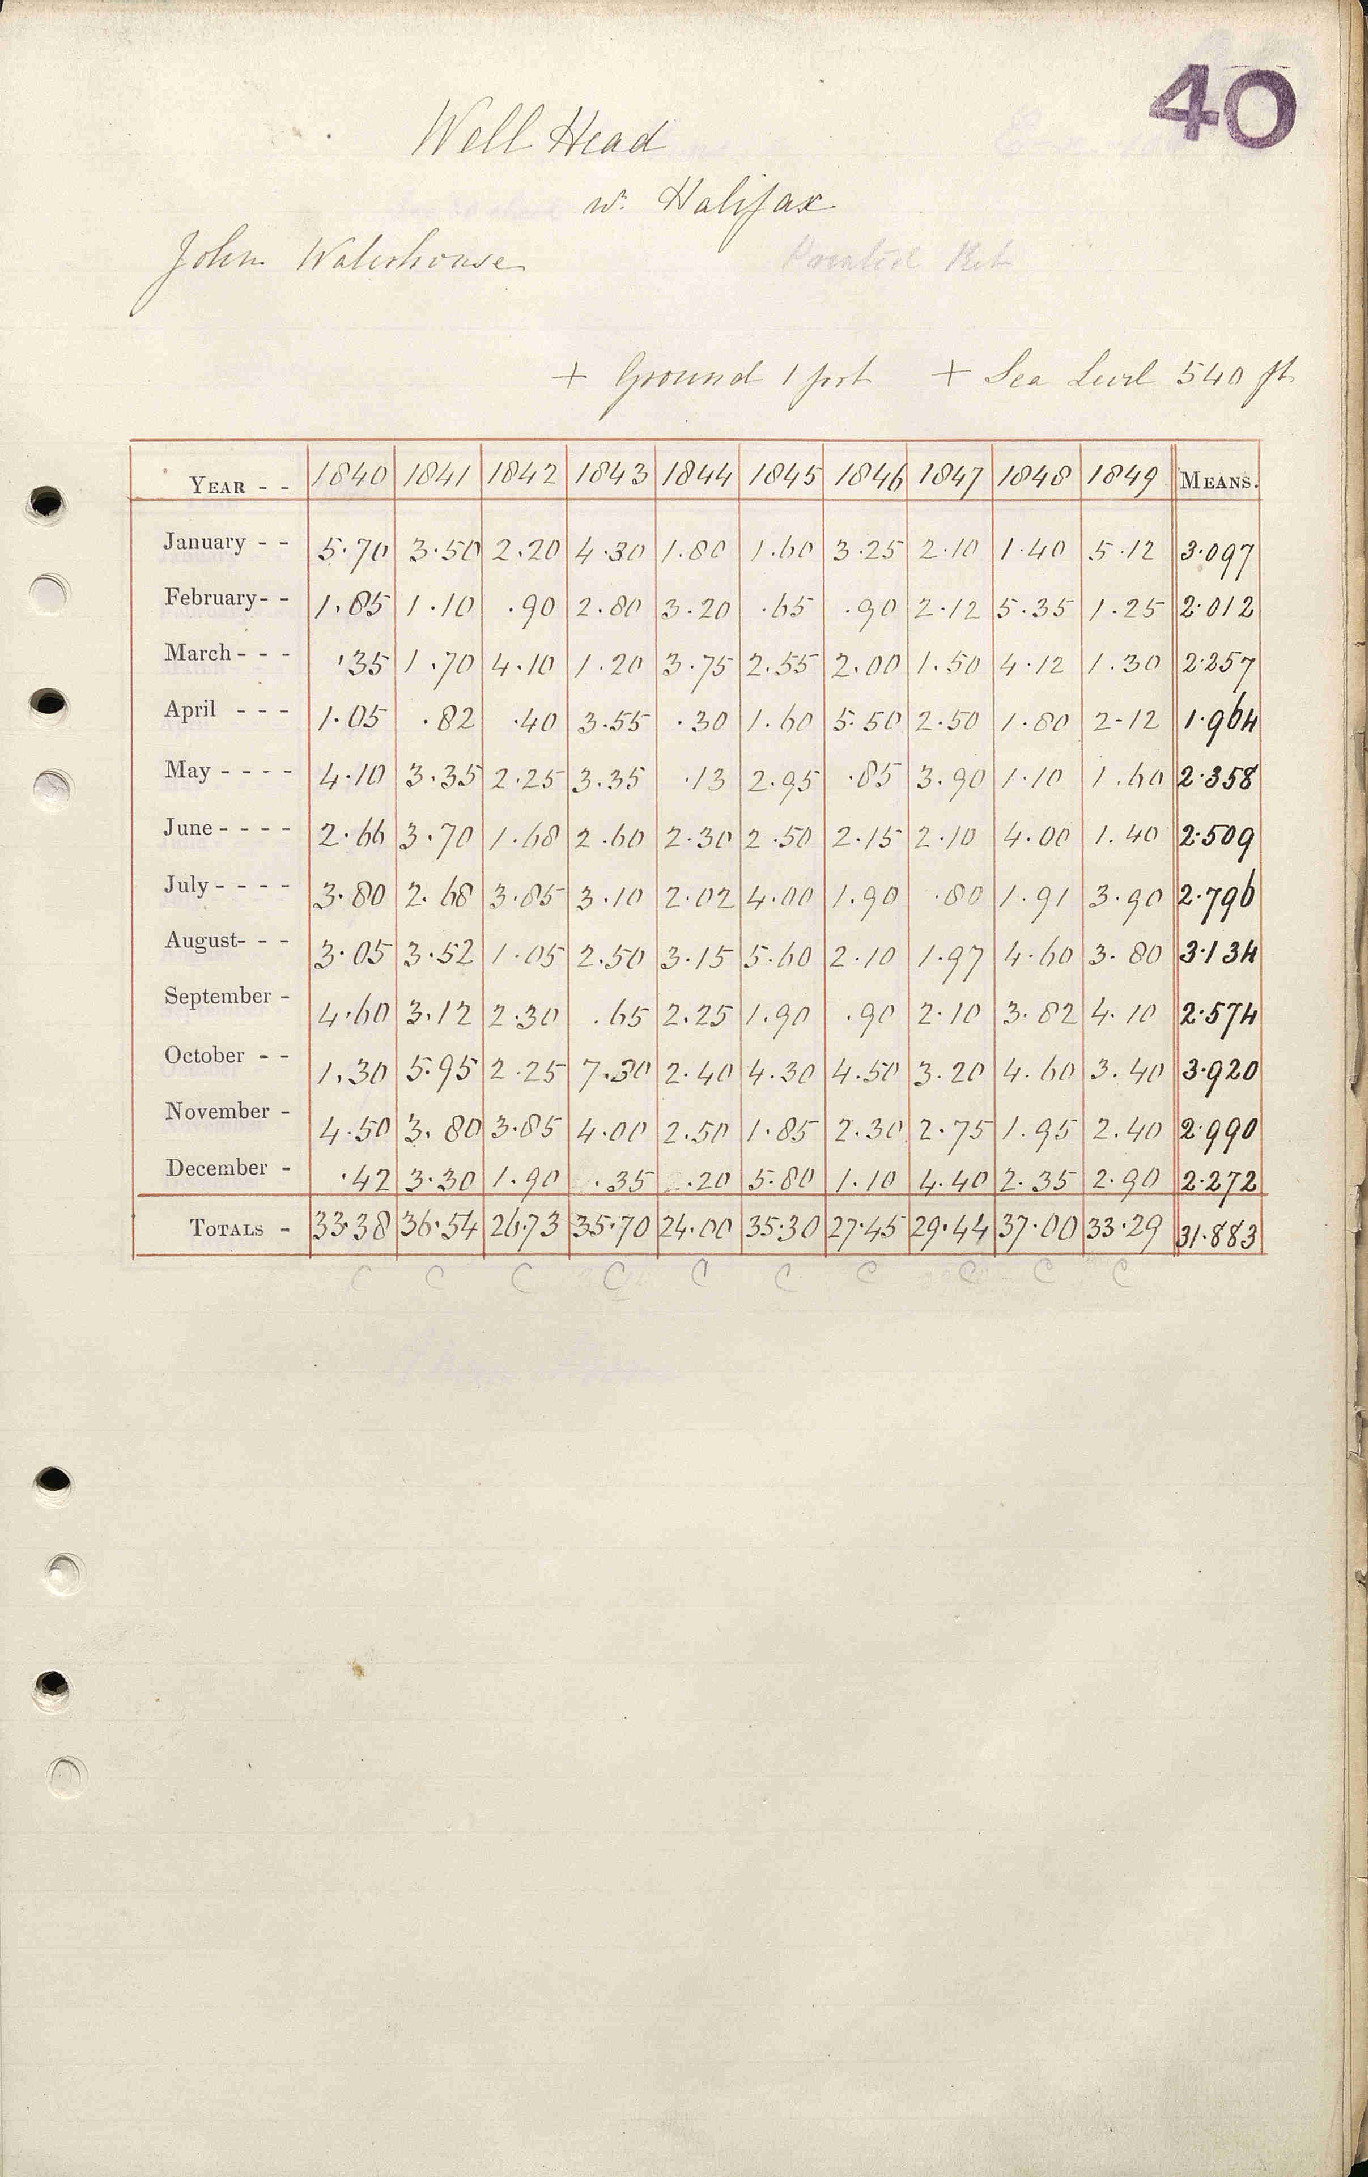 40
Well Head
w. Halifax
John Waterhouse
+ Ground 1 foot + Sea Level 540 ft
YEAR - - 1840 1841 1842 1843 1844 1845 1846 1847 1848 1849 MEANS.
January - - 5.70 3.50 2.20 4.30 1.80 1.60 3.25 2.10 1.40 5.12 3.097
February - - 1.85 1.10 .90 2.80 3.20 .65 .90 2.12 5.35 1.25 2.012
March - - - .35 1.70 4.10 1.20 3.75 2.55 2.00 1.50 4.12 1.30 2.257
April - - - 1.05 .82 .40 3.55 .30 1.60 5.50 2.50 1.80 2.12 1.964
May - - - - 4.10 3.35 2.25 3.35 .13 2.95 .85 3.90 1.10 1.60 2.358
June - - - - 2.66 3.70 1.68 2.60 2.30 2.50 2.15 2.10 4.00 1.40 2.509
July - - - - 3.80 2.68 3.85 3.10 2.02 4.00 1.90 .80 1.91 3.90 2.796
August - - - 3.05 3.52 1.05 2.50 3.15 5.60 2.10 1.97 4.60 3.80 3.134
September - 4.60 3.12 2.30 .65 2.25 1.90 .90 2.10 3.82 4.10 2.574
October - - 1.30 5.95 2.25 7.30 2.40 4.30 4.50 3.20 4.60 3.40 3.920
November - 4.50 3.80 3.85 4.00 2.50 1.85 2.30 2.75 1.95 2.40 2.990
December - .42 3.30 1.90 .35 .20 5.80 1.10 4.40 2.35 2.90 2.272
TOTALS - 33.38 36.54 26.73 35.70 24.00 35.30 27.45 29.44 37.00 33.29 31.883
C C C C C C C C C C